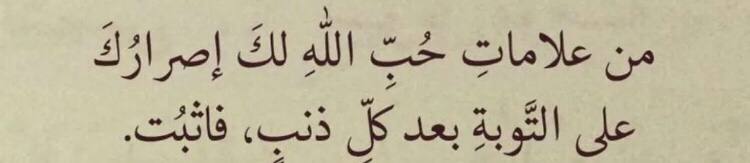 من علاماتِ حُبِّ اللهِ لكَ إصرارُكَ
على التَّوبةِ بعد كلِّ ذنبٍ، فاثبُت.